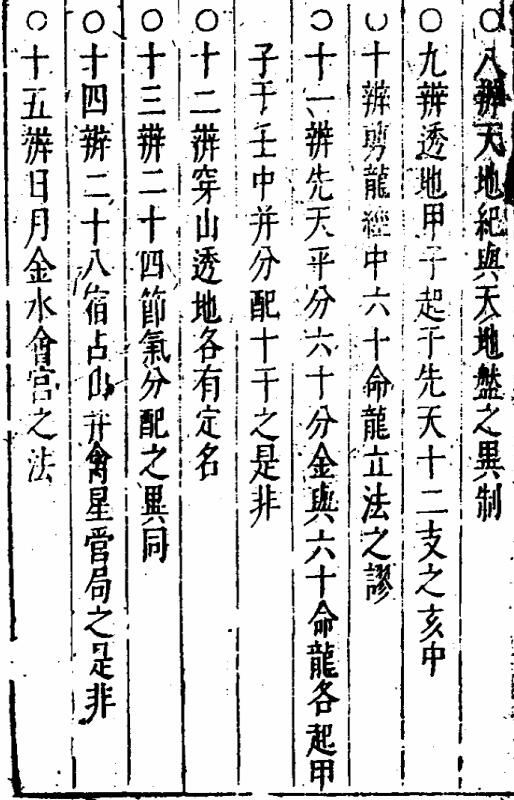 ○八辯天地紀與天地盤之異制
○九辯透地甲子起于先天十二支之亥中
○十辯剪龍經中六十命龍立法之謬
○十一辨先天平分六十分金與六十命龍各起甲
子于壬中并分配十干之是非
○十二辯穿山透地各有定名
○十三辯二十四節氣分配之異同
○十四辯二十八宿占山并禽星管局之是非
○十五辯日月金水會宮之法